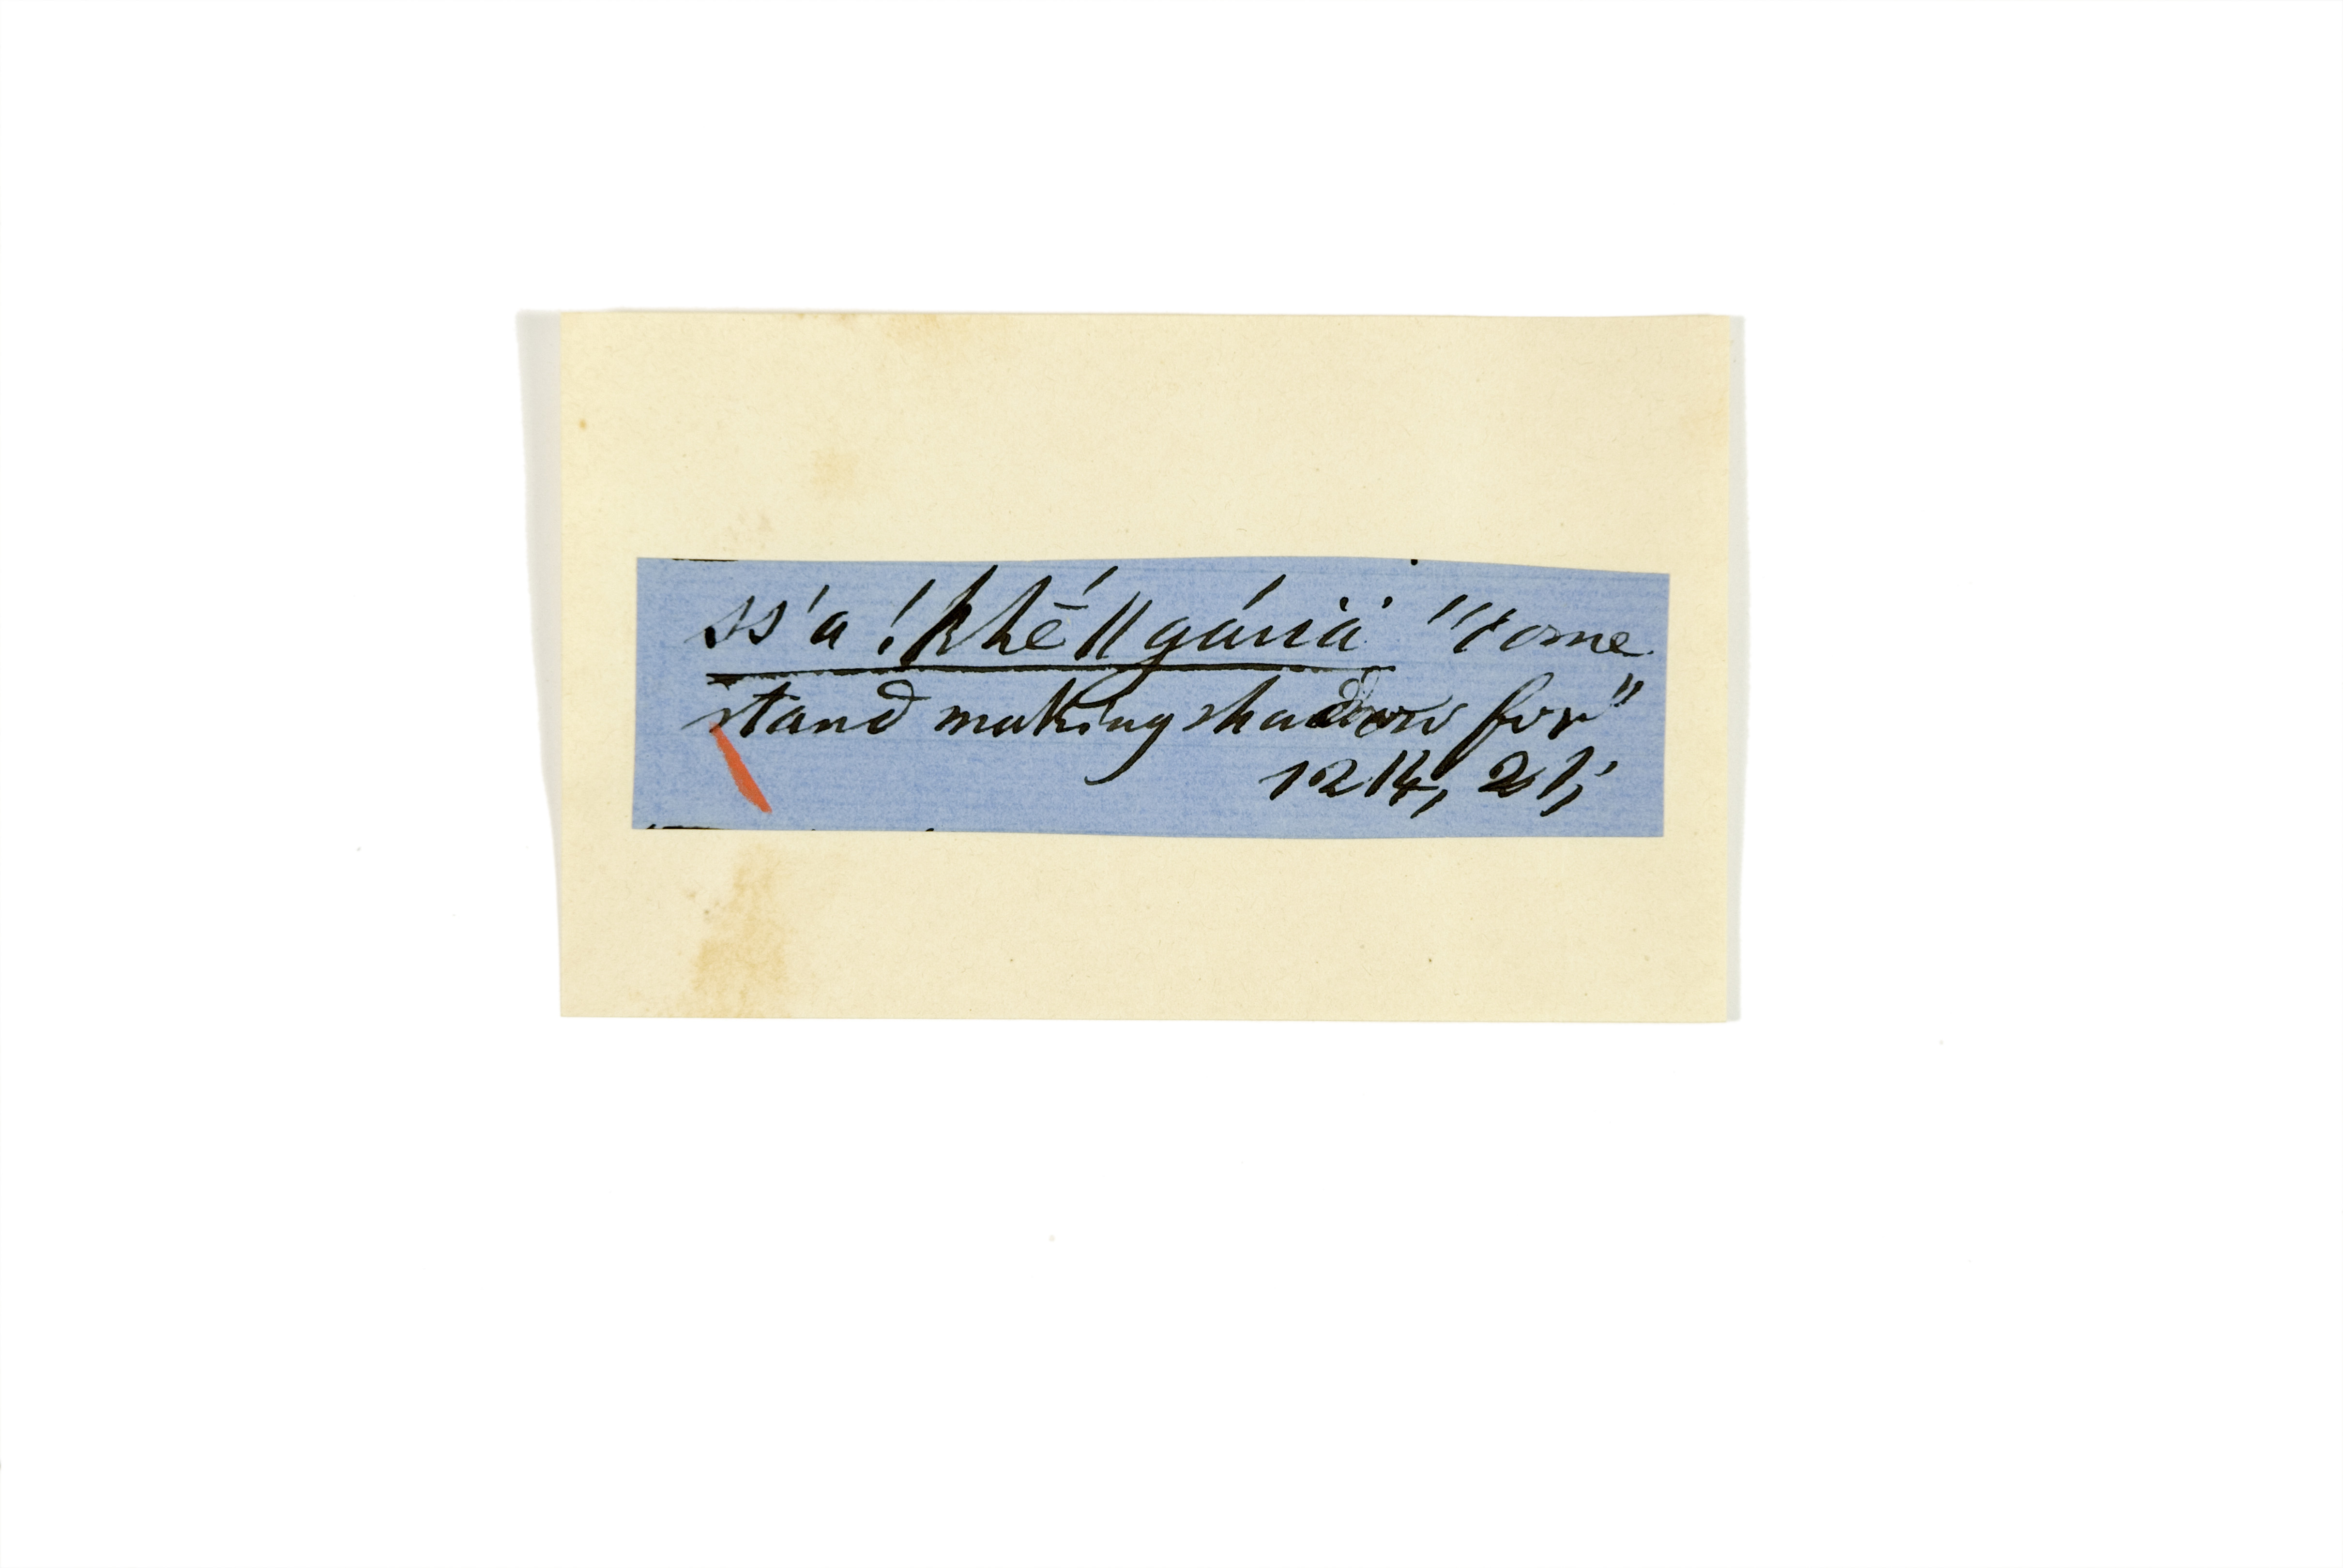 ss'a !khḗ ǁgáuä́ "come
stand making shadow for"
1214, 21;